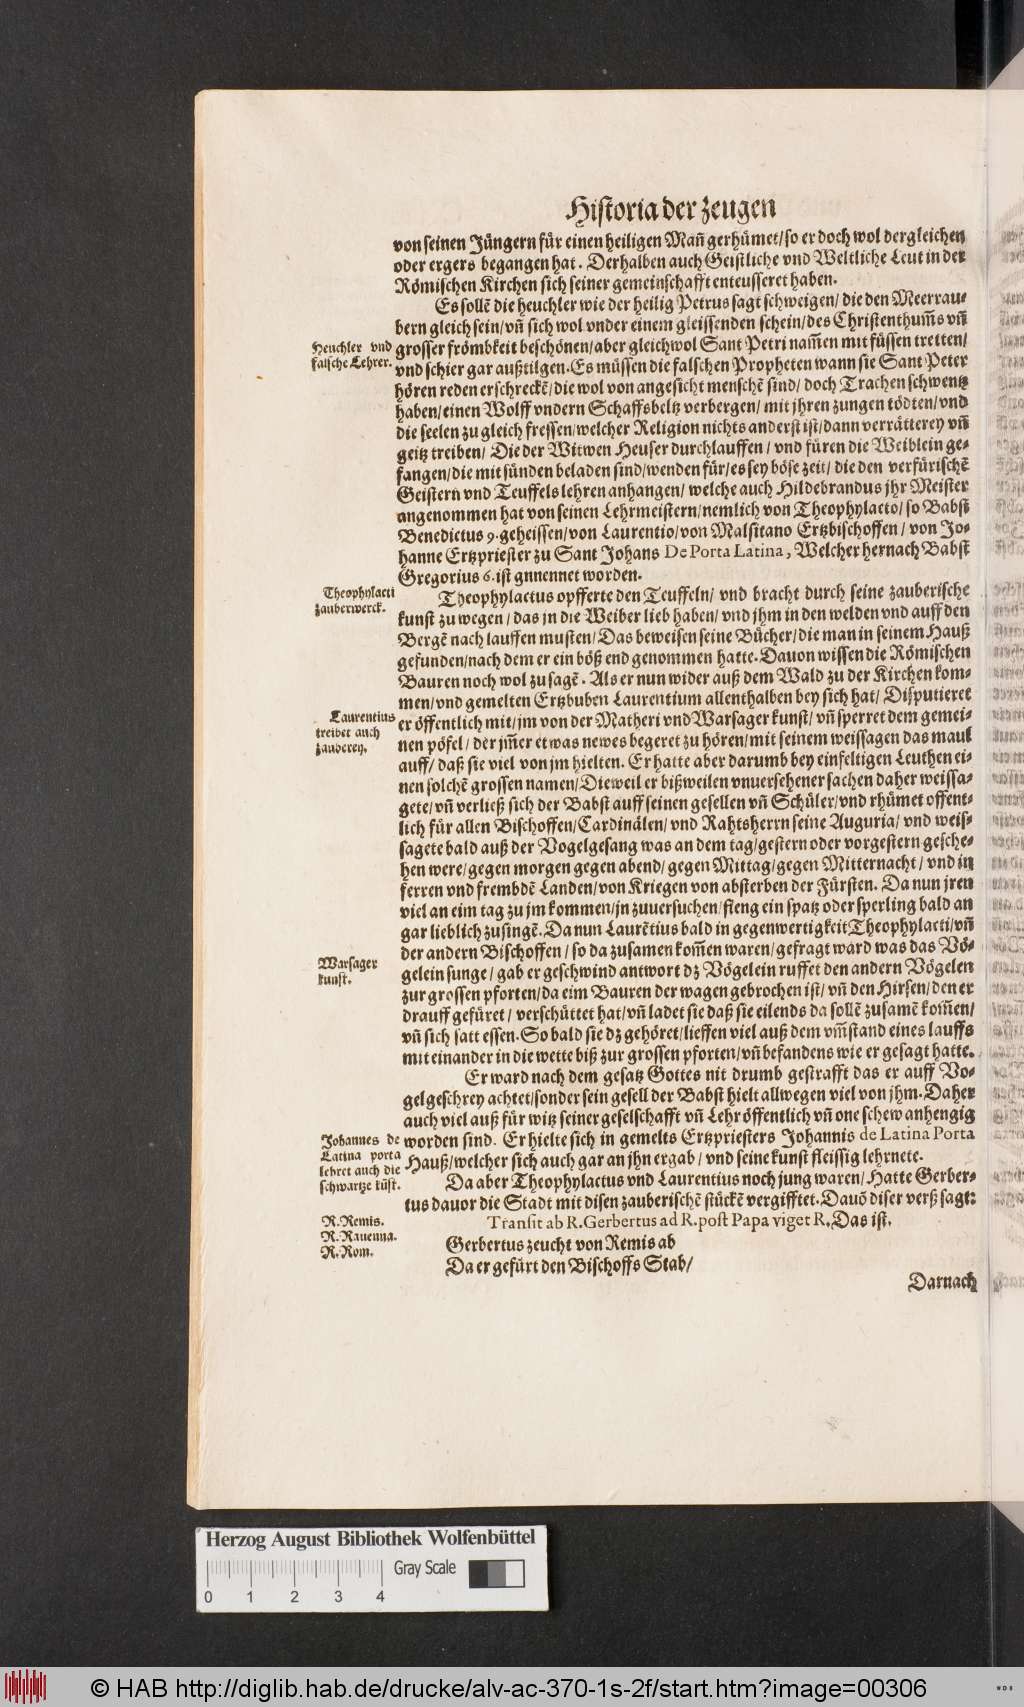 Historia der zeugen
von seinen Jüngern für einen heiligen Mañ gerhümet/ so er doch wol dergleichen
oder ergers begangen hat. Derhalben auch Geistliche vnd Weltliche Leut in der
Römischen Kirchen sich seiner gemeinschafft enteusseret haben.
Es sollẽ die heuchler wie der heilig Petrus sagt schweigen/ die den Meerrau-
bern gleich sein/ vñ sich wol vnder einem gleissenden schein/ des Christenthum̃s vñ
Heuchler vnd
falsche Lehrer.
grosser frömbkeit beschönen/ aber gleichwol Sant Petri nam̃en mit füssen tretten/
vnd schier gar außtilgen. Es müssen die falschen Propheten wann sie Sant Peter
hören reden erschreckẽ/ die wol von angesicht menschẽ sind/ doch Trachen schwentz
haben/ einen Wolff vndern Schaffsbeltz verbergen/ mit jhren zungen tödten/ vnd
die seelen zu gleich fressen/ welcher Religion nichts anderst ist/ dann verrätterey vñ
geitz treiben/ Die der Witwen Heuser durchlauffen/ vnd füren die Weiblein ge-
fangen/ die mit sünden beladen sind/ wenden für/ es sey böse zeit/ die den verfürischẽ
Geistern vnd Teuffels lehren anhangen/ welche auch Hildebrandus jhr Meister
angenommen hat von seinen Lehrmeistern/ nemlich von Theophylacto/ so Babst
Benedictus 9. geheissen/ von Laurentio/ von Malsitano Ertzbischoffen/ von Jo-
hanne Ertzpriester zu Sant Johans De Porta Latina, Welcher hernach Babst
Gregorius 6. ist gnnennet worden.
Theophylacti
zauberwerck.
Theophylactus opfferte den Teuffeln/ vnd bracht durch seine zauberische
kunst zu wegen/ das jn die Weiber lieb haben/ vnd jhm in den welden vnd auff den
Bergẽ nach lauffen musten/ Das beweisen seine Bücher/ die man in seinem Hauß
gefunden/ nach dem er ein böß end genommen hatte. Dauon wissen die Römischen
Bauren noch wol zu sagẽ. Als er nun wider auß dem Wald zu der Kirchen kom-
men/ vnd gemelten Ertzbuben Laurentium allenthalben bey sich hat/ Disputieret
Laurentius
treibet auch
zauberey.
er öffentlich mit/ jm von der Matheri vnd Warsager kunst/ vñ sperret dem gemei-
nen pöfel/ der jm̃er etwas newes begeret zu hören/ mit seinem weissagen das maul
auff/ daß sie viel von jm hielten. Er hatte aber darumb bey einfeltigen Leuthen ei-
nen solchẽ grossen namen/ Dieweil er bißweilen vnuersehener sachen daher weissa-
gete/ vñ verließ sich der Babst auff seinen gesellen vñ Schüler/ vnd rhümet offent-
lich für allen Bischoffen/ Cardinälen/ vnd Rahtsherrn seine Auguria/ vnd weis-
sagete bald auß der Vogelgesang was an dem tag/ gestern oder vorgestern gesche-
hen were/ gegen morgen gegen abend/ gegen Mittag/ gegen Mitternacht/ vnd in
ferren vnd frembdẽ Landen/ von Kriegen von absterben der Fürsten. Da nun jren
viel an eim tag zu jm kommen/ jn zuuersuchen/ fieng ein spatz oder sperling bald an
gar lieblich zu singẽ. Da nun Laurẽtius bald in gegenwertigkeit Theophylacti/ vñ
der andern Bischoffen/ so da zusamen kom̃en waren/ gefragt ward was das Vö-
Warsager
kunst.
gelein sunge/ gab er geschwind antwort dz Vögelein ruffet den andern Vögelen
zur grossen pforten/ da eim Bauren der wagen gebrochen ist/ vñ den Hirsen/ den er
drauff gefüret/ verschüttet hat/ vñ ladet sie daß sie eilends da sollẽ zusamẽ kom̃en/
vñ sich satt essen. So bald sie dz gehöret/ lieffen viel auß dem vm̃stand eines lauffs
mit einander in die wette biß zur grossen pforten/ vñ befandens wie er gesagt hatte.
Er ward nach dem gesatz Gottes nit drumb gestrafft das er auff Vo-
gelgeschrey achtet/ sonder sein gesell der Babst hielt allwegen viel von jhm. Daher
auch viel auß für witz seiner geselschafft vñ Lehr öffentlich vñ one schew anhengig
Johannes de
Latina porta
lehret auch die
schwartze kũst.
worden sind. Er hielte sich in gemelts Ertzpriesters Johannis de Latina Porta
Hauß/ welcher sich auch gar an jhn ergab/ vnd seine kunst fleissig lehrnete.
Da aber Theophylactus vnd Laurentius noch jung waren/ Hatte Gerber-
tus dauor die Stadt mit disen zauberischẽ stückẽ vergifftet. Dauõ diser verß sagt:
R. Remis.
R. Rauenna.
R. Rom.
Transit ab R. Gerbertus ad R. post Papa viget R. Das ist.
Gerbertus zeucht von Remis ab
Da er gefürt den Bischoffs Stab/
Darnach
Herzog August Bibliothek Wolfenbüttel
Gray Scale
0 1 2 3 4
© HAB http://diglib.hab.de/drucke/alv-ac-370-1s-2f/start.htm?image=00306